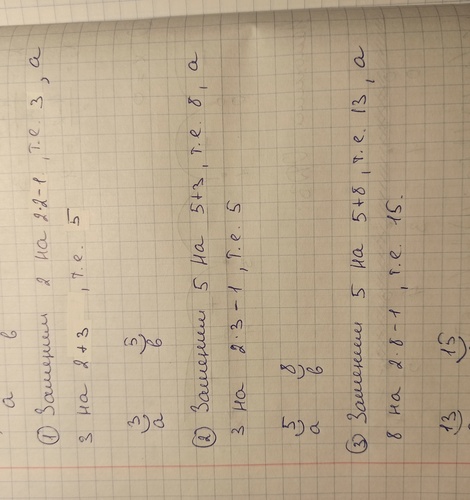 а в
① Заменим 2 на 2·2-1, т.е. 3, а
3 на 2+3, т.е. 5
3 5
а в
② Заменим 5 на 5+3, т.е. 8, а
3 на 2·3-1, т.е. 5
5 8
а в
③ Заменим 5 на 5+8, т.е. 13, а
8 на 2·8-1, т.е. 15.
13 15